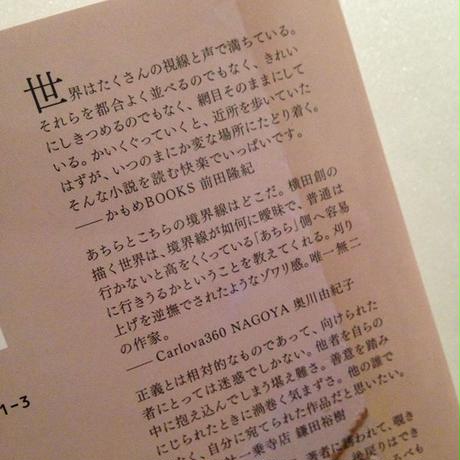 世界はたくさんの視線と声で満ちている。
それらを都合よく並べるのでもなく、きれい
にしきつめるのでもなく、網目そのままにして
いる。かいくぐっていくと、近所を歩いていた
はずが、いつのまにか変な場所にたどり着く。
そんな小説を読む快楽でいっぱいです。
——かもめBOOKS 前田隆紀
あちらとこちらの境界線はどこだ。横田創の
描く世界は、境界線が如何に曖昧で、普通は
行かないと高をくくっている「あちら」側へ容易
に行きうるかということを教えてくれる。刈り
上げを逆撫でされたようなゾワリ感。唯一無二
の作家。
——Carlova360 NAGOYA 奥川由紀子
正義とは相対的なものであって、向けられた
者にとっては迷惑でしかない。他者を自らの
中に抱え込んでしまう堪え難さ。善意を踏み
にじられたときに渦巻く気まずさ。他の誰で
なく、自分に宛てられた作品だと思いたい。
一乗寺店 鎌田裕樹
著者に誘われて、覗き
後戻りはでき
るべも
1-3